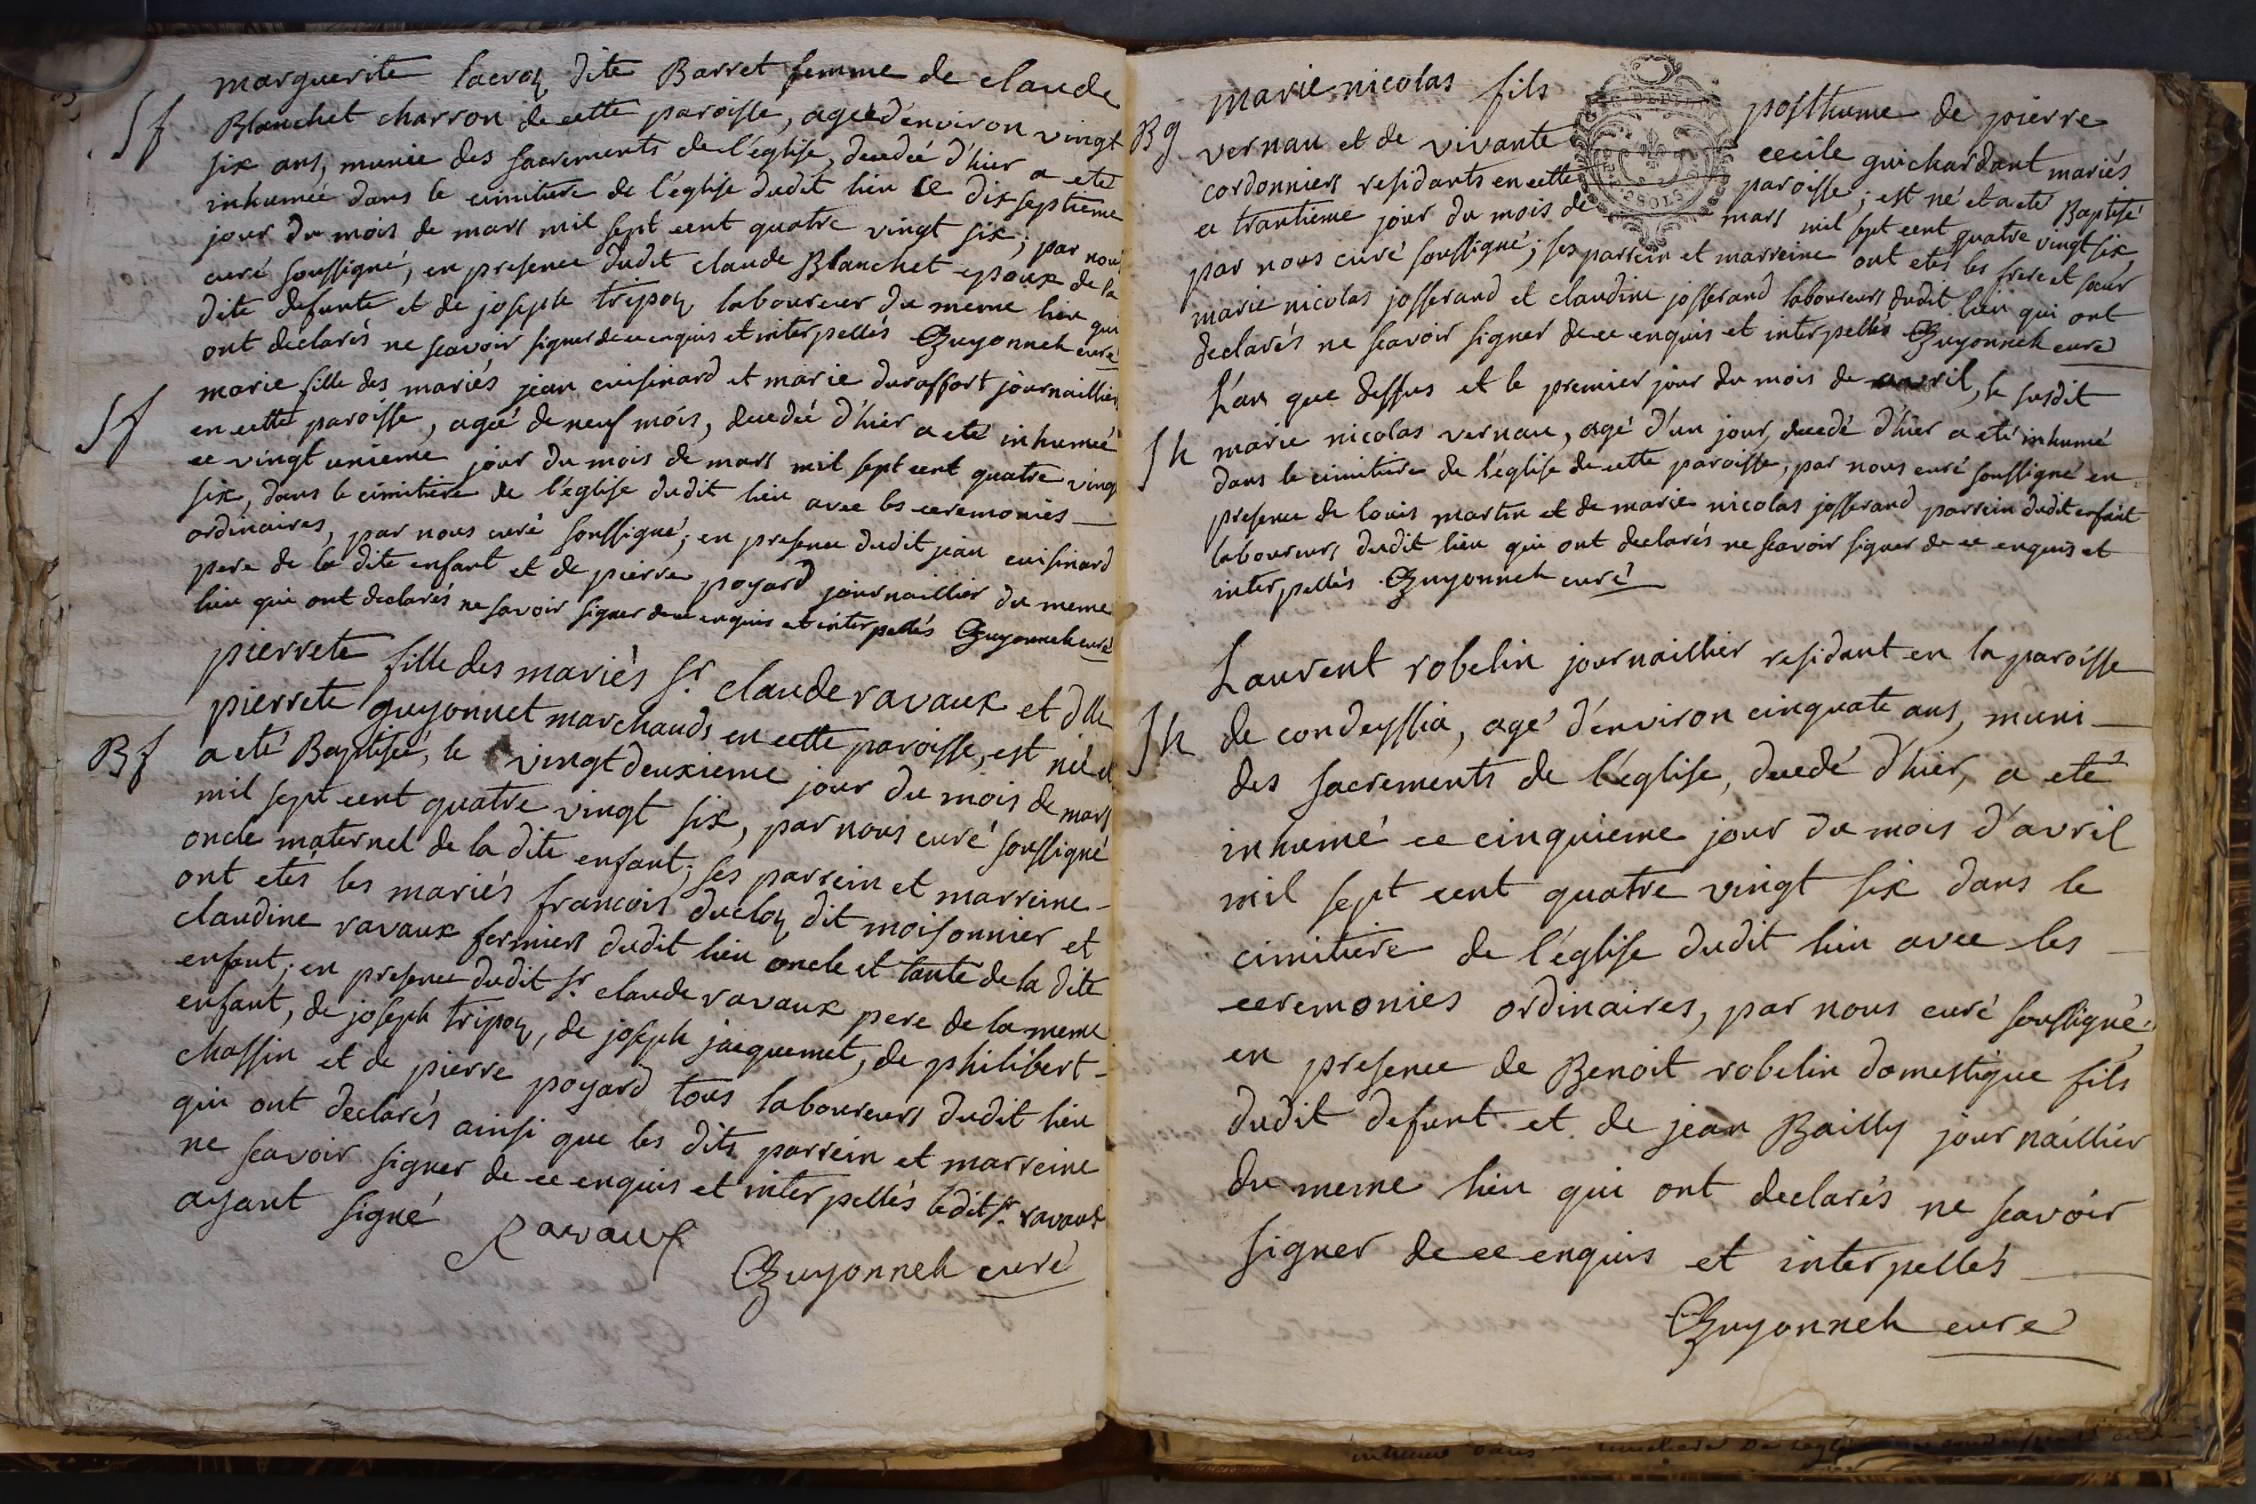 marguerite lacroz dite Barret femme de claude
Sf
Blanchet charron de cette paroisse, ageé d'environ vingt
six ans, munie des sacrements de l'église, decedeé d'hier a eté
inhumée dans le cimitiere de l'église dudit lieu ce dix septieme
jour du mois de mars mil sept cent quatre vingt six; par nous
curé soussigné, en presence dudit claude Blanchet epoux de la
dite defunte et de joseph tripoz laboureur du meme lieu qui
ont declarés ne scavoir signer de ce enquis et interpellés Guyonnet curé
marie fille des mariés jean cuisinard et marie duraffort journailliers
Sf
en cette paroisse, ageé de neuf mois, decedeé d'hier a eté inhumeé
ce vingt unieme jour du mois de mars mil sept cent quatre vingt
six, dans le cimitiere de l'église dudit lieu avec les ceremonies
ordinaires, par nous curé soussigné; en presence dudit jean cuisinard
pere de la dite enfant et de pierre poyard journaillier du meme
lieu qui ont declarés ne savoir signer de ce enquis et interpellés Guyonnet curé
pierrete fille des mariés Sr. claude ravaux et dlle
pierrete guyonnet marchands en cette paroisse, est neé et
Bf
a eté Baptiseé, le vingt deuxieme jour du mois de mars
mil sept cent quatre vingt six, par nous curé soussigné
oncle maternel de la dite enfant; ses parrein et marreine
ont etés les mariés francois ducloz dit moisonnier et
claudine ravaux fermiers dudit lieu oncle et tante de la dite
enfant; en presence dudit Sr. claude ravaux pere de la meme
enfant, de joseph tripoz, de joseph jacquemet, de philibert
chassin et de pierre poyard tous laboureurs dudit lieu
qui ont declarés ainsi que les dits parrein et marreine
ne scavoir signer de ce enquis et interpellés ledit Sr. ravaux
ayant signé
Ravaux
Guyonnet curé
marie nicolas fils posthume de pierre
Bg
vernau et de vivante cecile guichardant mariés
cordonniers residants en cette paroisse; est né et a eté Baptisé
ce trantieme jour du mois de mars mil sept cent quatre vingt six
par nous curé soussigné; ses parrein et marreine ont etés les frere et soeur
marie nicolas josserand et claudine josserand laboureurs dudit lieu qui ont
declarés ne scavoir signer de ce enquis et interpellés Guyonnet curé
L'an que dessus et le premier jour du mois de avril, le susdit
Sh
marie nicolas vernau, agé d'un jour, decedé d'hier a eté inhumé
dans le cimitiere de l'église de cette paroisse, par nous curé soussigné en
presence de louis martin et de marie nicolas josserand parrein dudit enfant
laboureurs dudit lieu qui ont declarés ne scavoir signer de ce enquis et
interpellés Guyonnet curé
Laurent robelin journaillier residant en la paroisse
Sh
de condeyssia, agé d'environ cinquate ans, muni
des sacrements de l'église, decedé d'hier, a eté
inhumé ce cinquieme jour du mois d'avril
mil sept cent quatre vingt six dans le
cimitiere de l'église dudit lieu avec les
ceremonies ordinaires, par nous curé soussigné;
en presence de Benoit robelin domestique fils
dudit defunt et de jean Bailly journaillier
du meme lieu qui ont declarés ne scavoir
signer de ce enquis et interpellés
Guyonnet curé